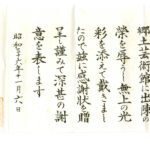 郷土芸術館に出陳
栄を辱うし無上の光
彩を添えて戴きまし
たので茲に感謝状を贈
呈し謹みて深甚の謝
意を表します
昭和三十六年十一月六日